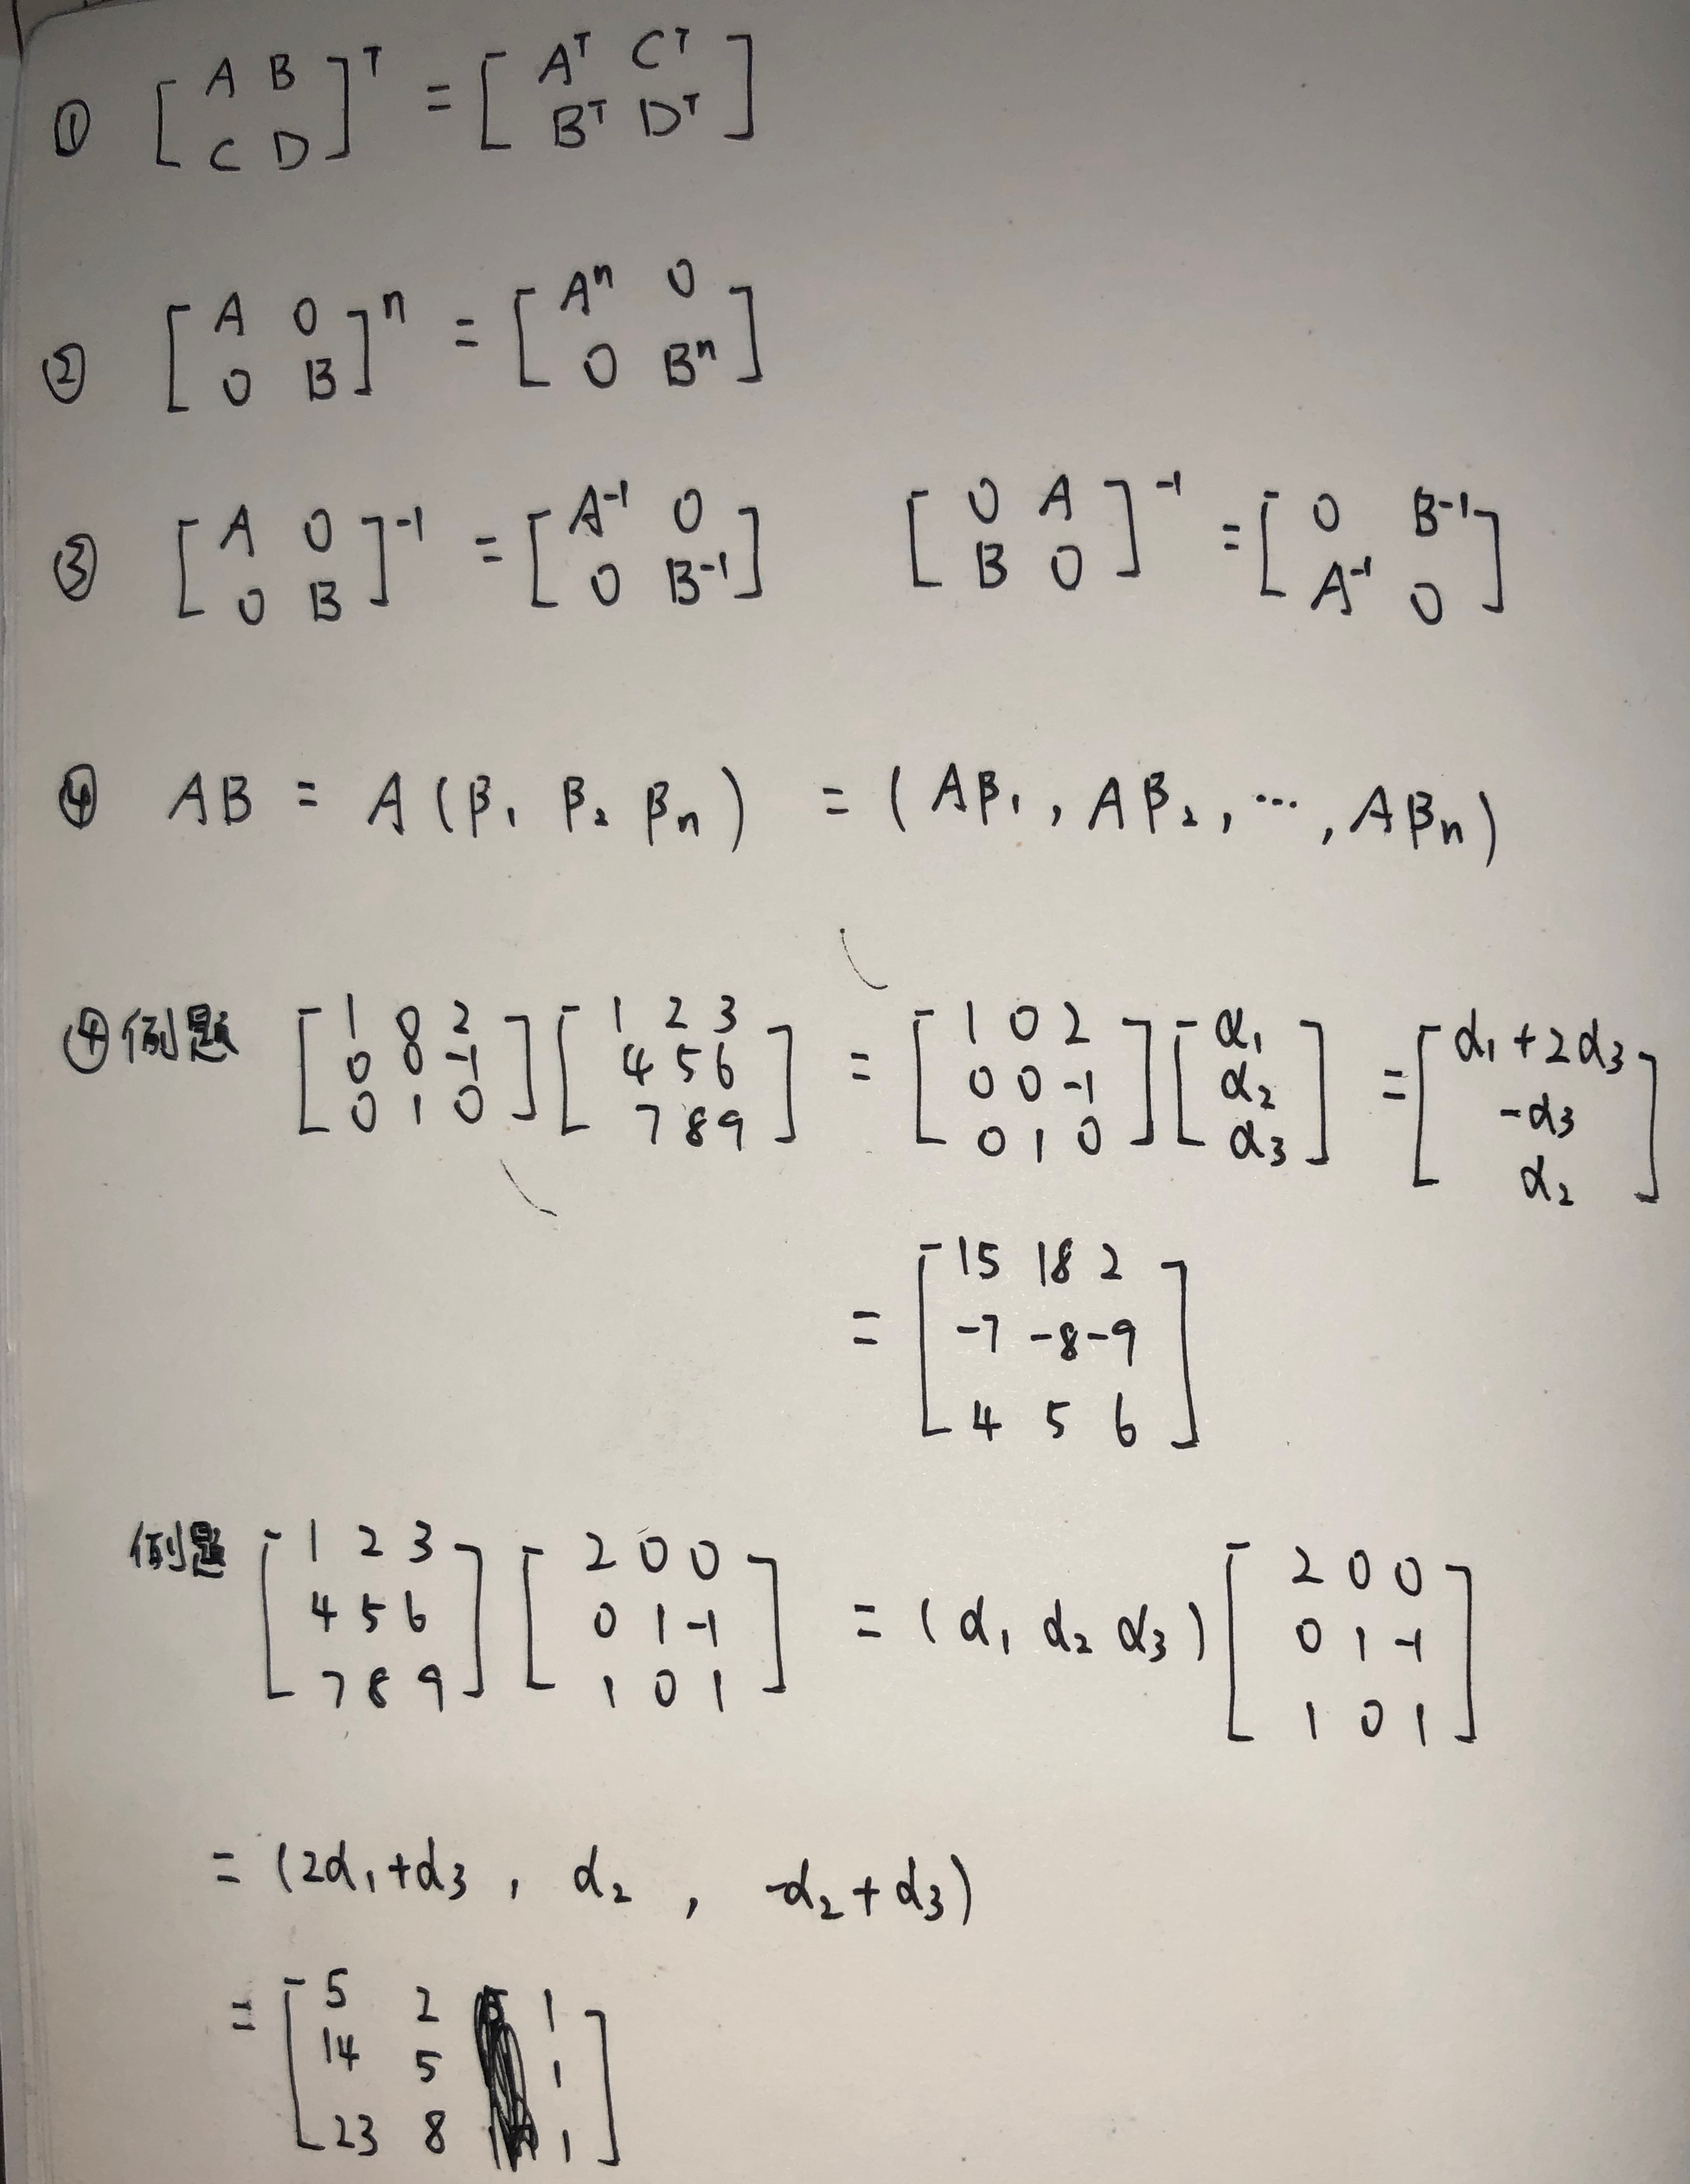 ① [A B; C D]ᵀ = [Aᵀ Cᵀ; Bᵀ Dᵀ]
② [A 0; 0 B]ⁿ = [Aⁿ 0; 0 Bⁿ]
③ [A 0; 0 B]⁻¹ = [A⁻¹ 0; 0 B⁻¹] [0 A; B 0]⁻¹ = [0 B⁻¹; A⁻¹ 0]
④ AB = A(β₁ β₂ βₙ) = (Aβ₁, Aβ₂, ⋯, Aβₙ)
④例题 [1 0 2; 0 0 -1; 0 1 0][1 2 3; 4 5 6; 7 8 9] = [1 0 2; 0 0 -1; 0 1 0][α₁; α₂; α₃] = [α₁+2α₃; -α₃; α₂]
= [15 18 2; -7 -8 -9; 4 5 6]
例题 [1 2 3; 4 5 6; 7 8 9][2 0 0; 0 1 -1; 1 0 1] = (α₁ α₂ α₃)[2 0 0; 0 1 -1; 1 0 1]
= (2α₁+α₃, α₂, -α₂+α₃)
= [5 2 1; 14 5 1; 23 8 1]